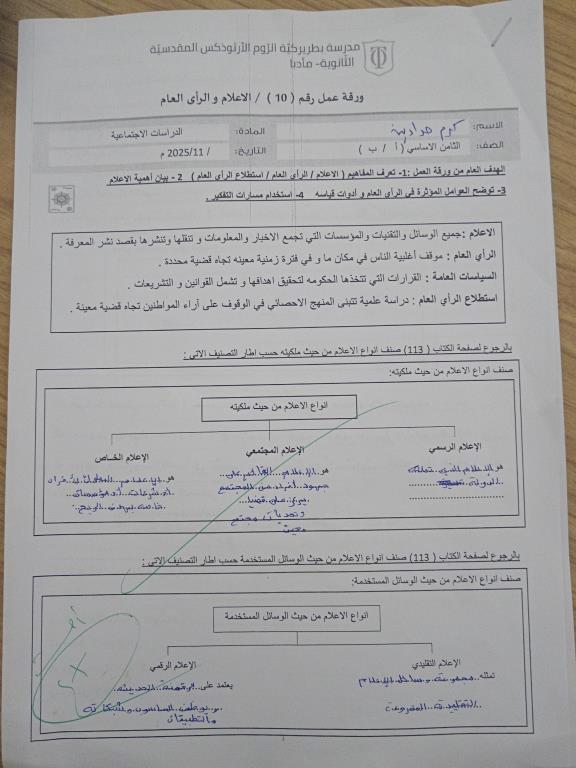 مدرسة بطريركيّة الرّوم الأرثوذكس المقدسيّة
الثّانوية- مأدبا
ورقة عمل رقم ( 10 ) / الاعلام و الرأي العام
الاسم: كرم حدادين المادة: الدراسات الاجتماعية
الصف: الثامن الاساسي ( أ / ب ) التاريخ: / 2025/11 م
الهدف العام من ورقة العمل :1- تعرف المفاهيم ( الاعلام / الرأي العام / استطلاع الرأي العام ) 2 - بيان أهمية الاعلام
3- توضح العوامل المؤثرة في الرأي العام و أدوات قياسه 4- استخدام مسارات التفكير .
الاعلام :جميع الوسائل والتقنيات والمؤسسات التي تجمع الاخبار والمعلومات و تنقلها وتنشرها بقصد نشر المعرفة .
الرأي العام : موقف أغلبية الناس في مكان ما و في فترة زمنية معينه تجاه قضية محددة .
السياسات العامة : القرارات التي تتخذها الحكومه لتحقيق اهدافها و تشمل القوانين و التشريعات .
استطلاع الرأي العام : دراسة علمية تتبنى المنهج الاحصائي في الوقوف على آراء المواطنين تجاه قضية معينة .
بالرجوع لصفحة الكتاب ( 113) صنف انواع الاعلام من حيث ملكيته حسب اطار التصنيف الاتي :
صنف انواع الاعلام من حيث ملكيته:
انواع الاعلام من حيث ملكيته
الإعلام الرسمي
هو الإعلام الذي تملكه
الدولة
الإعلام المجتمعي
هو الإعلام القائم على
جهود أفراد من المجتمع
على قضايا
وتحديات مجتمع
معين
الإعلام الخاص
هو
أو شركات أو مؤسسات
خاصة بهدف الربح
بالرجوع لصفحة الكتاب ( 113) صنف انواع الاعلام من حيث الوسائل المستخدمة حسب اطار التصنيف الاتي :
صنف انواع الاعلام من حيث الوسائل المستخدمة:
انواع الاعلام من حيث الوسائل المستخدمة
الإعلام التقليدي
تمثله مجموعة وسائل الإعلام
التقليدية المقروءة
الإعلام الرقمي
يعتمد على الرقمنة الحديثة
والتطبيقات